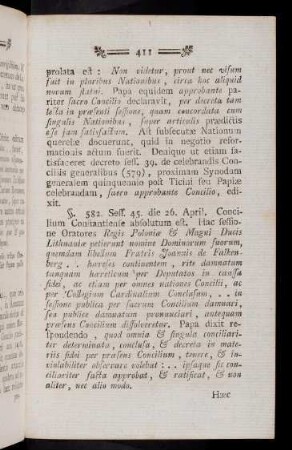 411
prolata est: Non videtur, prout nec visum
fuit in pluribus Nationibus, circa hoc aliquid
novum statui. Papa equidem approbante pa-
riter sacro Concilio declaravit, per decreta tam
lecta in præsenti sessione, quam concordata cum
singulis Nationibus, super articulis prædictis
esse jam satisfactum. Ast subsecutæ Nationum
querelæ docuerunt, quid in negotio refor-
mationis actum fuerit. Denique ut etiam sa-
tisfaceret decreto sess. 39. de celebrandis Con-
ciliis generalibus (579), proximam Synodum
generalem quinquennio post Ticini seu Papiæ
celebrandam, sacro approbante Concilio, edi-
xit.
§. 582. Sess. 45. die 26. April. Conci-
lium Constantiense absolutum est. Hac sessio-
ne Oratores Regis Poloniæ & Magni Ducis
Lithuaniæ petierunt nomine Dominorum suorum,
quemdam libellum Fratris Joannis de Falken-
berg .. hæreses continentem, rite damnatum
tanquam hæreticum per Deputatos in causa
fidei, ac etiam per omnes nationes Concilii, ac
per Collegium Cardinalium Conclusum, ... in
sessione publica per sacrum Concilium damnari,
seu publice damnatum pronunciari, antequam
præsens Concilium dissolveretur. Papa dixit re-
spondendo, quod omnia & singula conciliari-
ter determinata, conclusa, & decreta in mate-
riis fidei per præsens Concilium, tenere, & in-
violabiliter observare volebat: .. ipsaque sic con-
ciliariter facta approbat, & ratificat, & non
aliter, nec alio modo.
Hæc